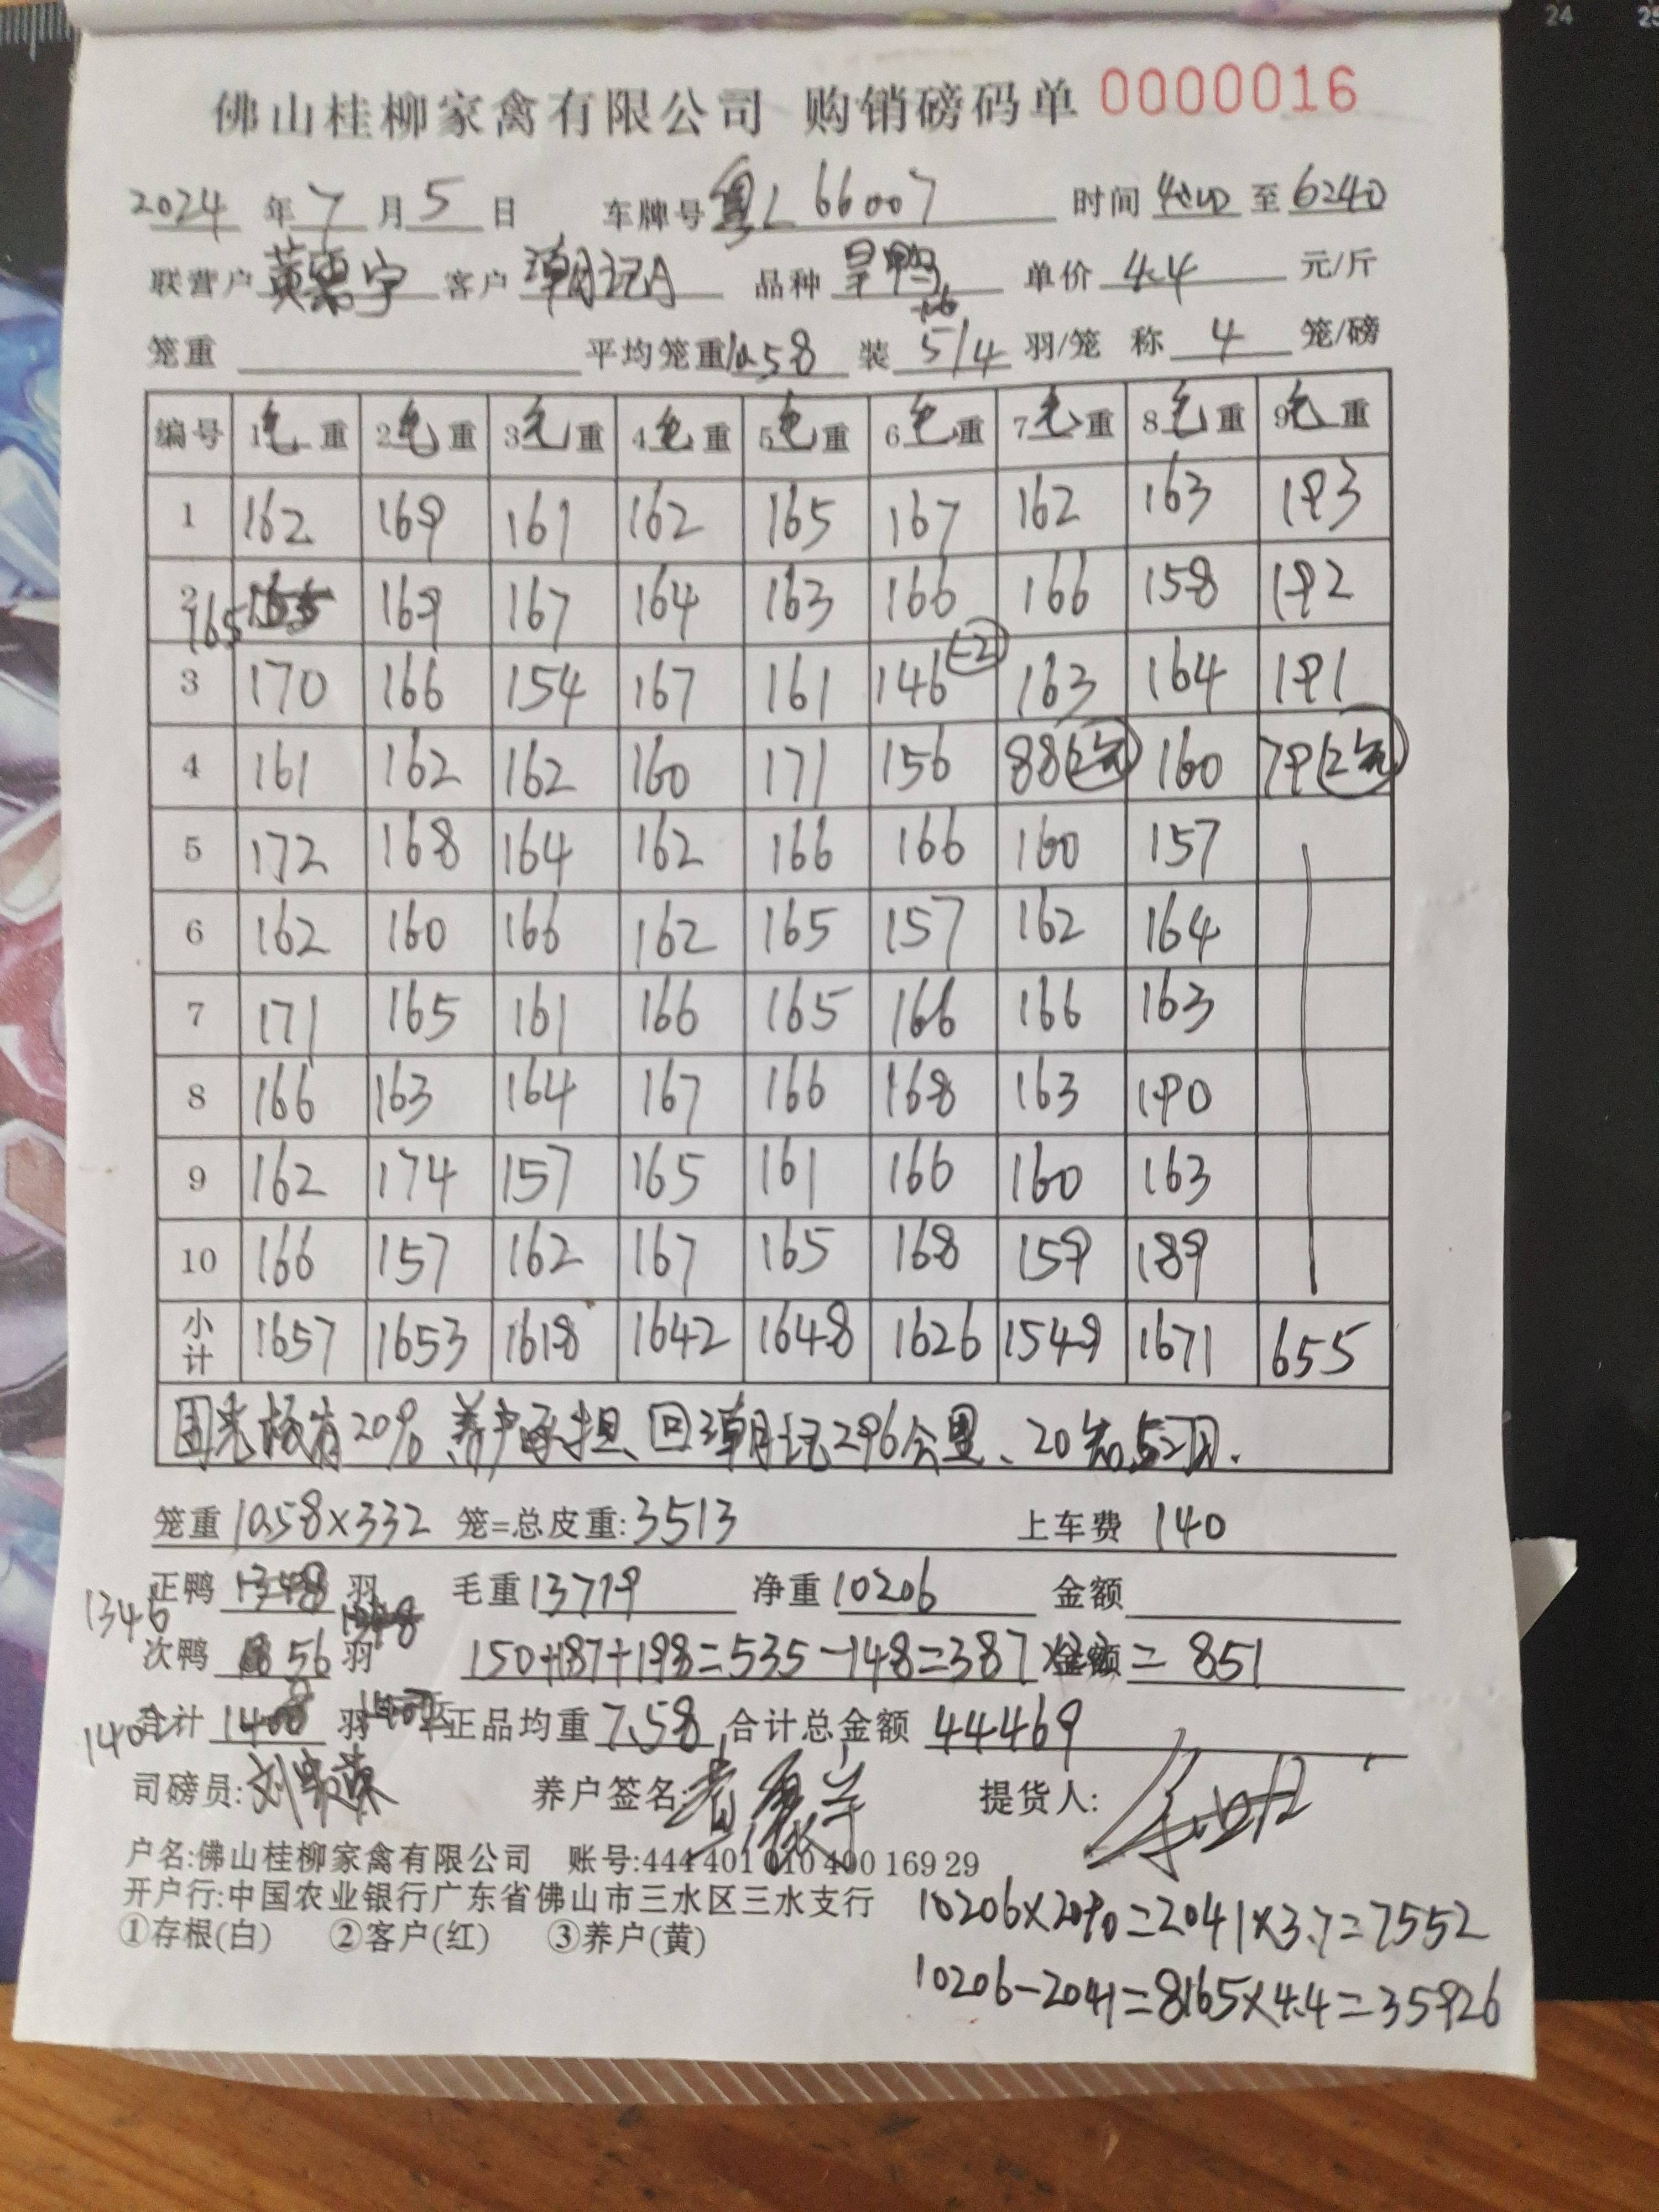 24 25
佛山桂柳家禽有限公司 购销磅码单 0000016
2024 年 7 月 5 日 车牌号 粤L 66007 时间 至 6240
联营户 黄 宇 客户 潮记 品种 旱鸭 单价 4.4 元/斤
笼重 平均笼重 10.58 装 5/4 羽/笼 称 4 笼/磅
编号 1毛重 2毛重 3毛重 4毛重 5毛重 6毛重 7毛重 8毛重 9毛重
1 162 169 161 162 165 167 162 163 193
2 165 169 167 164 163 166 166 158 192
3 170 166 154 167 161 146 (-2) 163 164 191
4 161 162 162 160 171 156 88(2笼) 160 79(2笼)
5 172 168 164 162 166 166 160 157
6 162 160 166 162 165 157 162 164
7 171 165 161 166 165 166 166 163
8 166 163 164 167 166 168 163 190
9 162 174 157 165 161 166 160 163
10 166 157 162 167 165 168 159 189
小计 1657 1653 1618 1642 1648 1626 1549 1671 655
20% 养户承担、回潮记296公里、20
笼重 10.58×332 笼=总皮重: 3513 上车费 140
正鸭 1346 羽 毛重 13719 净重 10206 金额
次鸭 56 羽 150+187+198=535-148=387 金额 = 851
合计 1402 羽 正品均重 7.58 合计总金额 44469
司磅员: 刘 养户签名: 提货人:
户名:佛山桂柳家禽有限公司 账号:444 401 010 400 169 29
开户行:中国农业银行广东省佛山市三水区三水支行
10206×20%=2041×3.7=7552
①存根(白) ②客户(红) ③养户(黄)
10206-2041=8165×4.4=35926